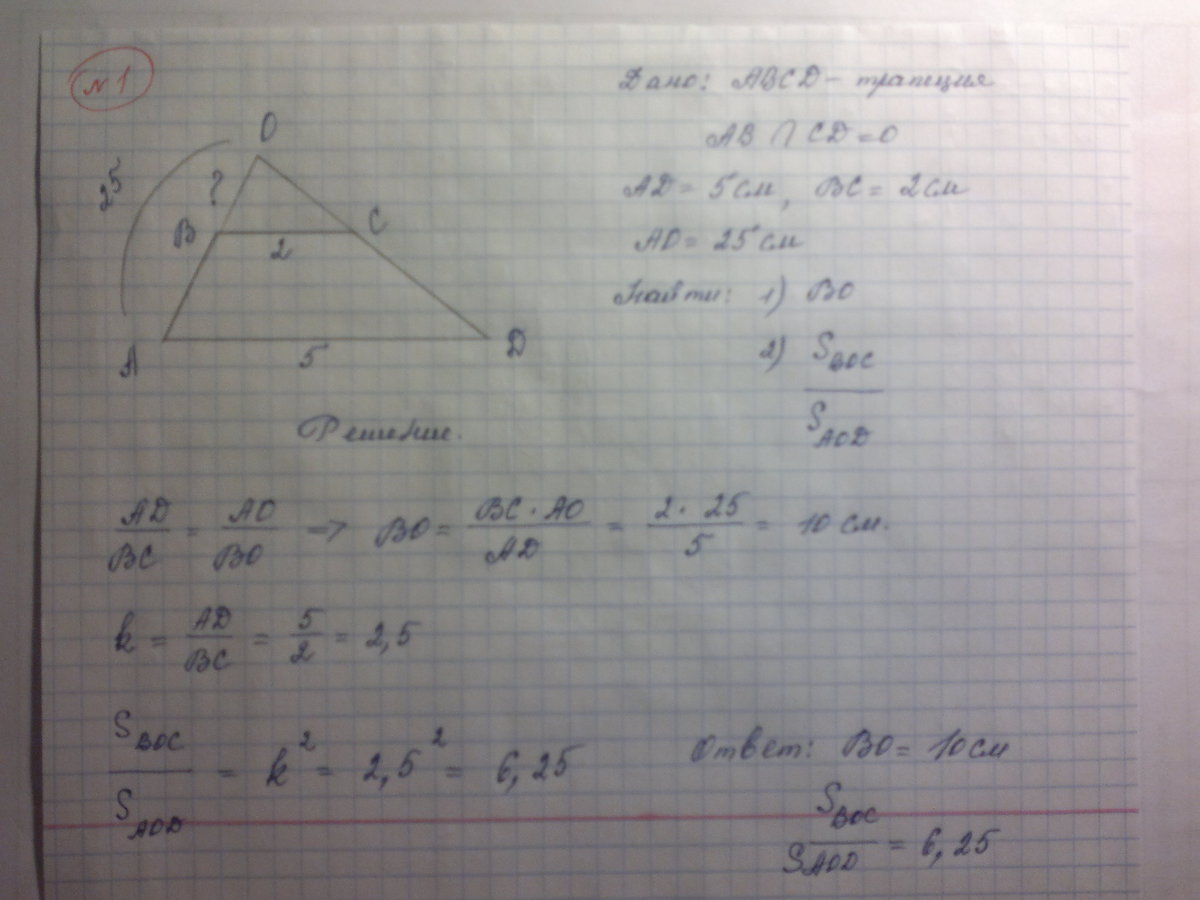 №1
Дано: ABCD – трапеция
AB ∩ CD = O
AD = 5 см, BC = 2 см
AO = 25 см
Найти: 1) BO
2) S_BOC / S_AOD
O
25
?
B
C
2
A
5
D
Решение.
AD/BC = AO/BO → BO = BC · AO / AD = 2 · 25 / 5 = 10 см.
k = AD/BC = 5/2 = 2,5
S_BOC / S_AOD = k² = 2,5² = 6,25
Ответ: BO = 10 см
S_BOC / S_AOD = 6,25